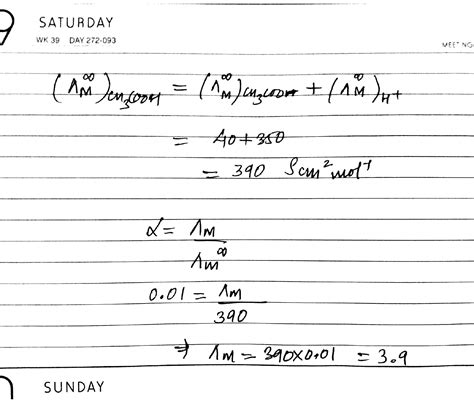 SATURDAY
WK 39 DAY 272-093
MEET NG
(Λ∞M)CH3COOH = (Λ∞M)CH3COOH + (Λ∞M)H+
= 40+350
= 390 Scm²mol⁻¹
α = ΛM / Λm∞
0.01 = ΛM / 390
→ ΛM = 390×0.01 = 3.9
SUNDAY